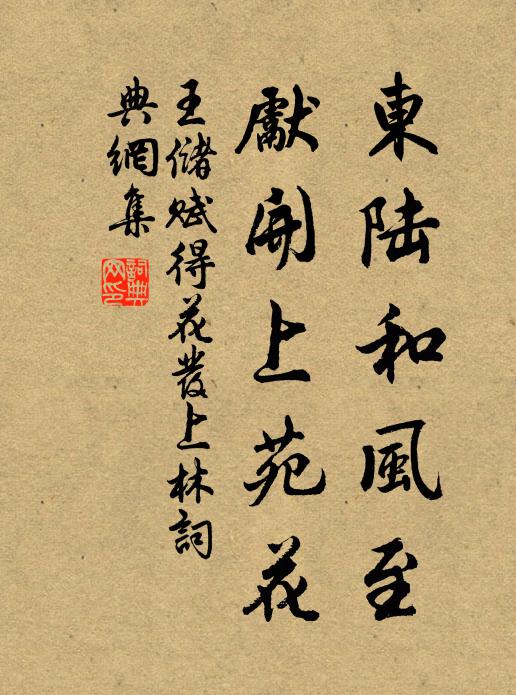 東陸和風至
獻開上苑花
王儲賦得花發上林詞
典網集
詞典
网印